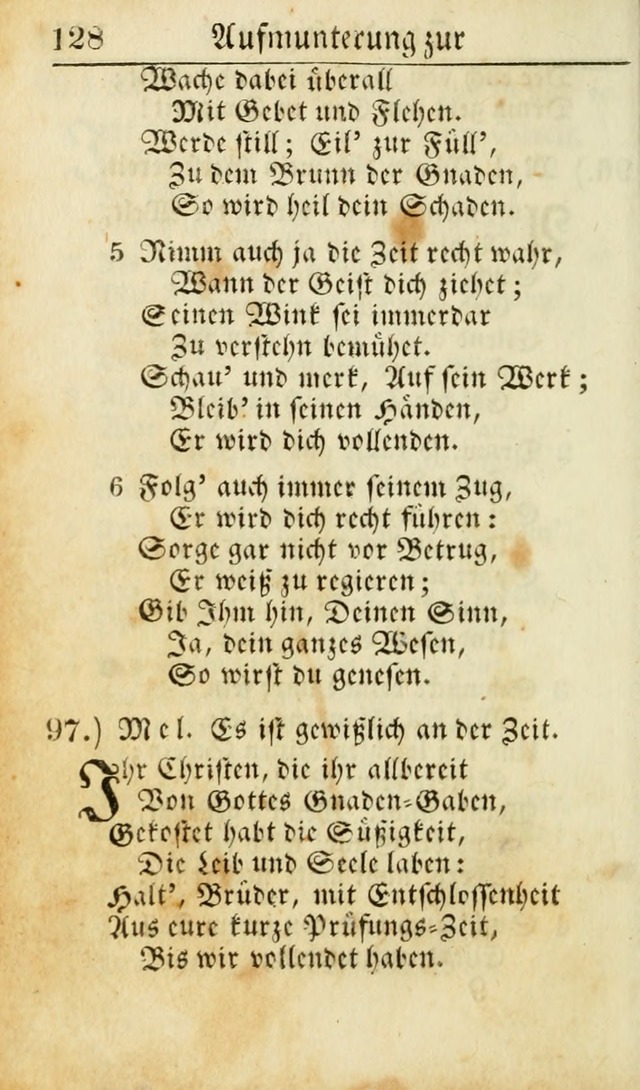 128 Aufmunterung zur
Wache dabei überall
Mit Gebet und Flehen.
Werde still; Eil' zur Füll',
Zu dem Brunn der Gnaden,
So wird heil dein Schaden.
5 Nimm auch ja die Zeit recht wahr,
Wann der Geist dich ziehet;
Seinen Wink sei immerdar
Zu verstehn bemühet.
Schau' und merk, Auf sein Werk;
Bleib' in seinen Händen,
Er wird dich vollenden.
6 Folg' auch immer seinem Zug,
Er wird dich recht führen:
Sorge gar nicht vor Betrug,
Er weiß zu regieren;
Gib Ihm hin, Deinen Sinn,
Ja, dein ganzes Wesen,
So wirst du genesen.
97.) Mel. Es ist gewißlich an der Zeit.
Ihr Christen, die ihr allbereit
Von Gottes Gnaden-Gaben,
Gekostet habt die Süßigkeit,
Die Leib und Seele laben:
Halt', Brüder, mit Entschlossenheit
Aus eure kurze Prüfungs-Zeit,
Bis wir vollendet haben.